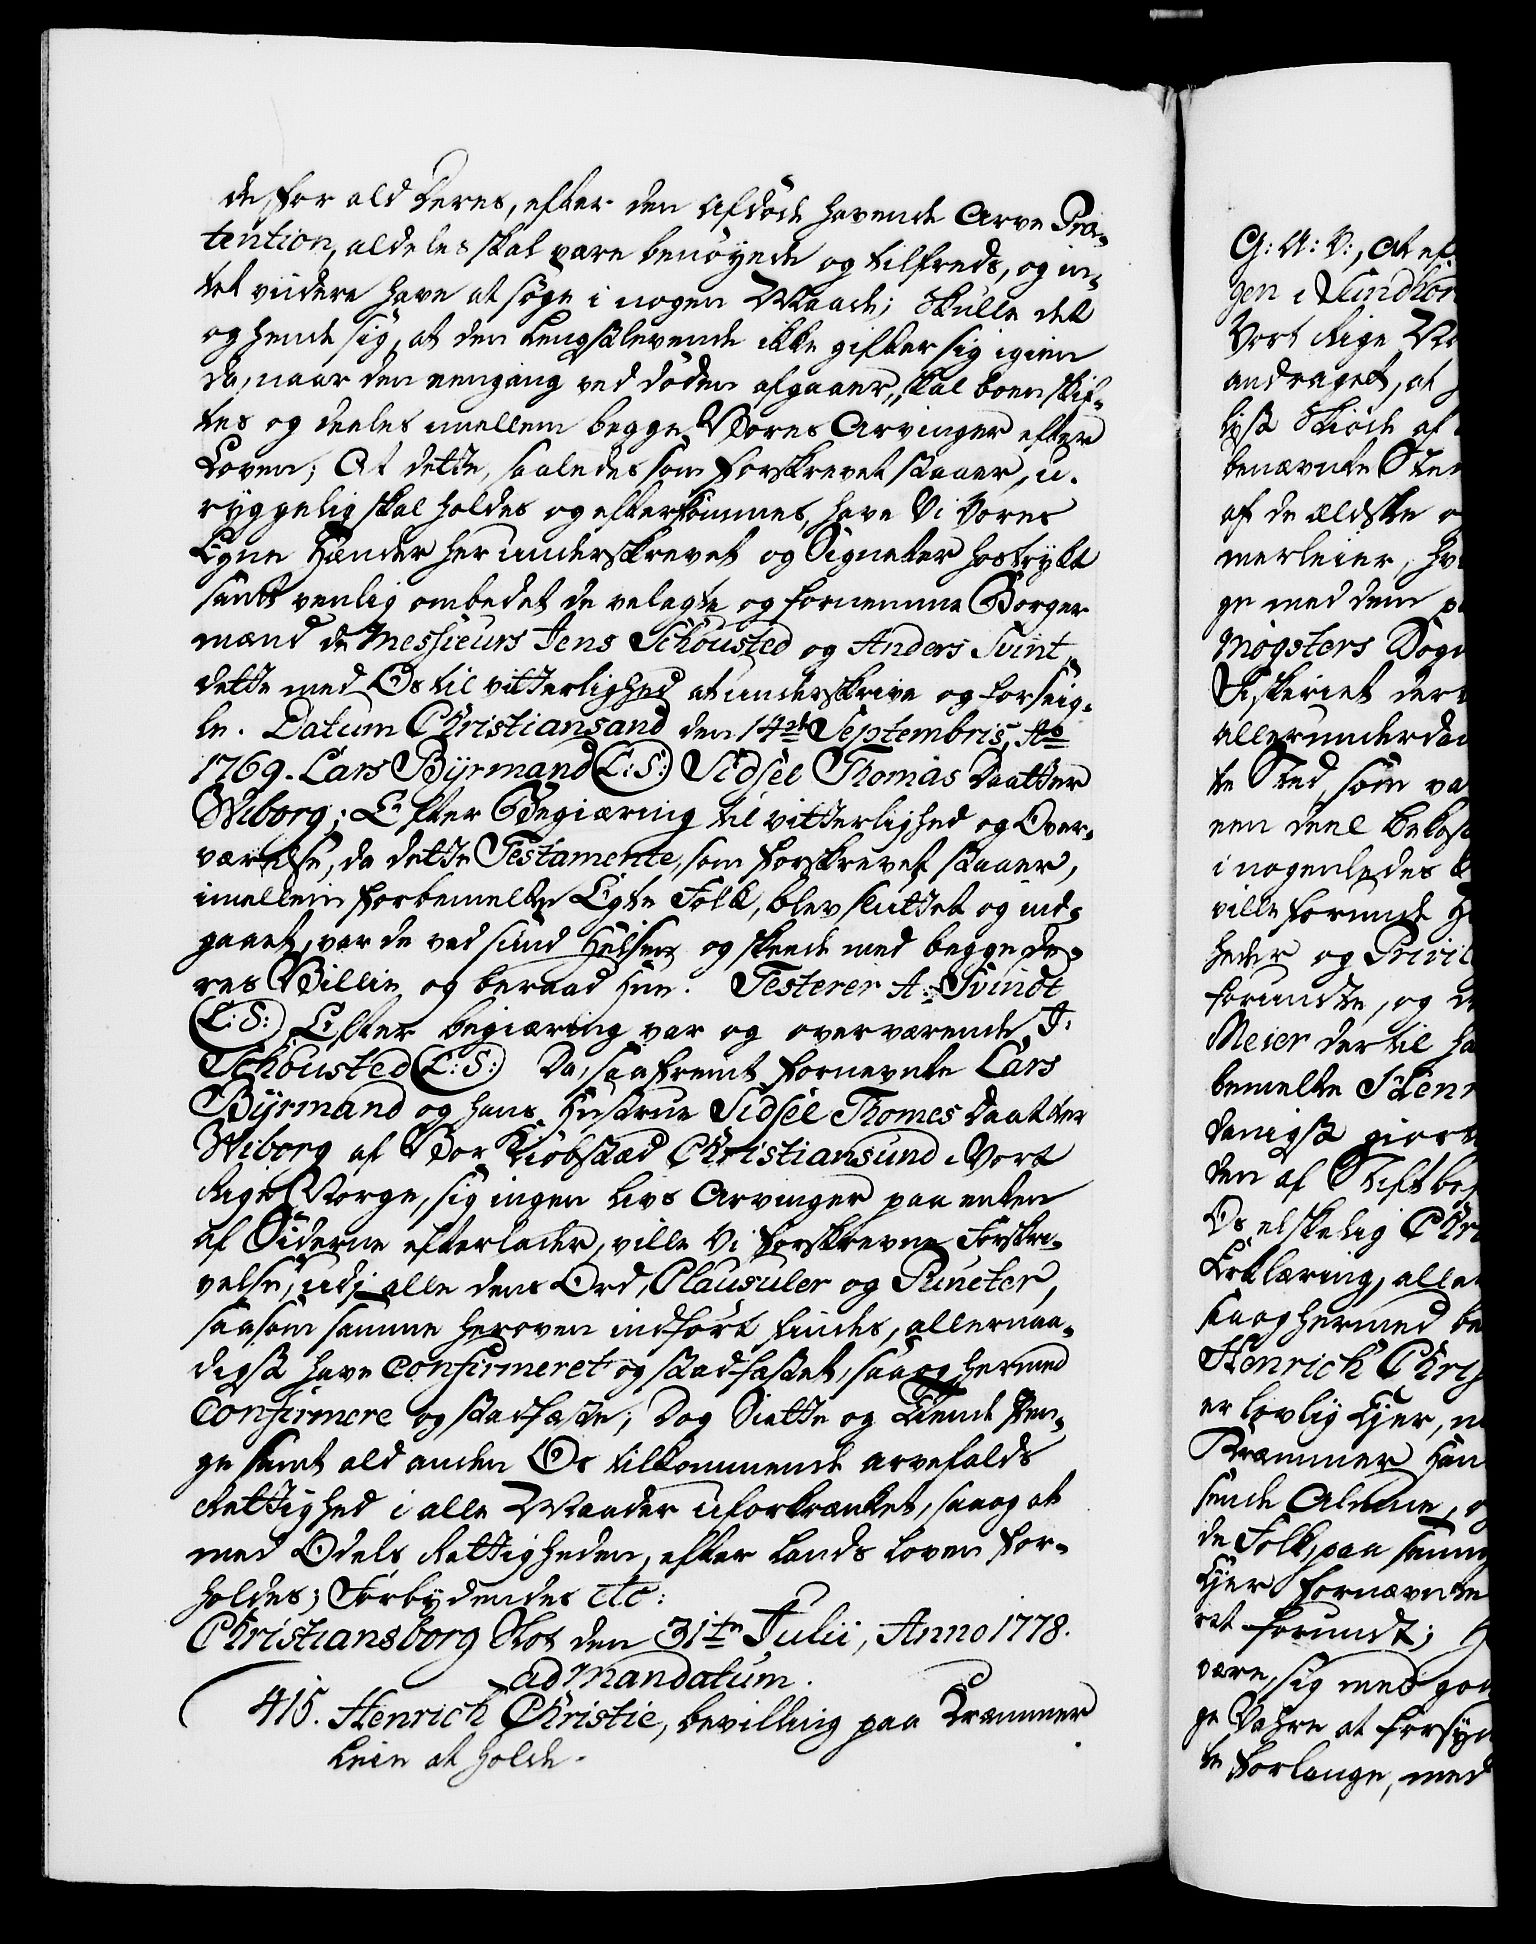 de for ald deres, efter den Afdöde havende Arve Præ-
tention, aldeles skal være benöyede og tilfreds, og in-
tet viidere have at söge i nogen Maade; Skulle det
og hende sig, at den Lengstlevende ikke gifter sig igien
da, naar den eengang ved döden afgaaer, skal boen skif-
tes og deeles imellem begge Vores Arvinger efter
Loven; At dette, saaledes som forskrevet staaer, u-
ryggelig skal holdes og efterkommes, have Vi Vores
Egne Hænder her underskrevet og Signeter hostrykt
samt venlig ombedet de velagte og fornemme Borger
mænd de Messieurs Jens Schousted og Anders Svint,
dette med Os til vitterlighed at underskrive og forseig-
le. Datum Christiansand den 14de Septembris, Ao
1769. Lars Byrmand (L:S:) Sidsel Thomas Daatter
Wiborg; Efter Begiæring til vitterlighed og Over-
værelse, da dette Testamente, som forskrevet staaer,
imellem forbemelte Egte Folk, blev sluttet og ind-
gaaet, var de ved sund Helsen og skeede med begge de-
res Villie og beraad Hue. Testerer A: Svindt
(L:S:) Efter begiæring var og overværende J:
Schousted (L:S:) Da, saafremt fornevnte Lars
Byrmand og hans Hustrue Sidsel Thomes Daatter
Wiborg af Vor Kiöbstæd Christiansund i Vort
Rige Norge, sig ingen livs Arvinger paa enten
af Siderne efterlader, ville Vi forskrevne Forskri-
velse, udj alle dens Ord, Clausuler og Puncter,
saasom samme heroven indfört findes, allernaa-
digst have Confirmeret og stadfæstet, saa og hermed
Confirmere og stadfæste; Dog Siette og Tiende Pen-
ge samt ald anden Os tilkommende arvefalds
Rettighed i alle Maader uforkrænket, saa og at
med Odels Rettigheden, efter Lands Loven for-
holdes; Forbydendes etc:
Christiansborg Slot den 31te Julii, Anno 1778.
ad Mandatum.
415. Henrich Christie, bevilling paa Kræmmer
Leie at holde.
G: A: V:, At ef-
gen i Sundhor
Vort Rige No
andraget, at
lyst Skiöde af
benævnte Ste
af de ældste o
merleier, hv
ge med dem p
Mögsters Sogn
Fiskeriet der
allerunderda
te Sted, som va
een deel bekos
i nogenledes
ville forunde H
heder og Privil
forundte, og d
Meier dertil ha
bemelte Henr
danigst giort
den af Stiftbe
Os elskelig Chri
Erklæring, aller
saa og hermed be
Henrich Chris
er lovlig Ejer, m
Kræmmer Han
sende Almue, o
de Folk, paa samme
Ejer fornævnte
ret forundt; H
være, sig med god
ge Vahre at forsyn
te forlange, med